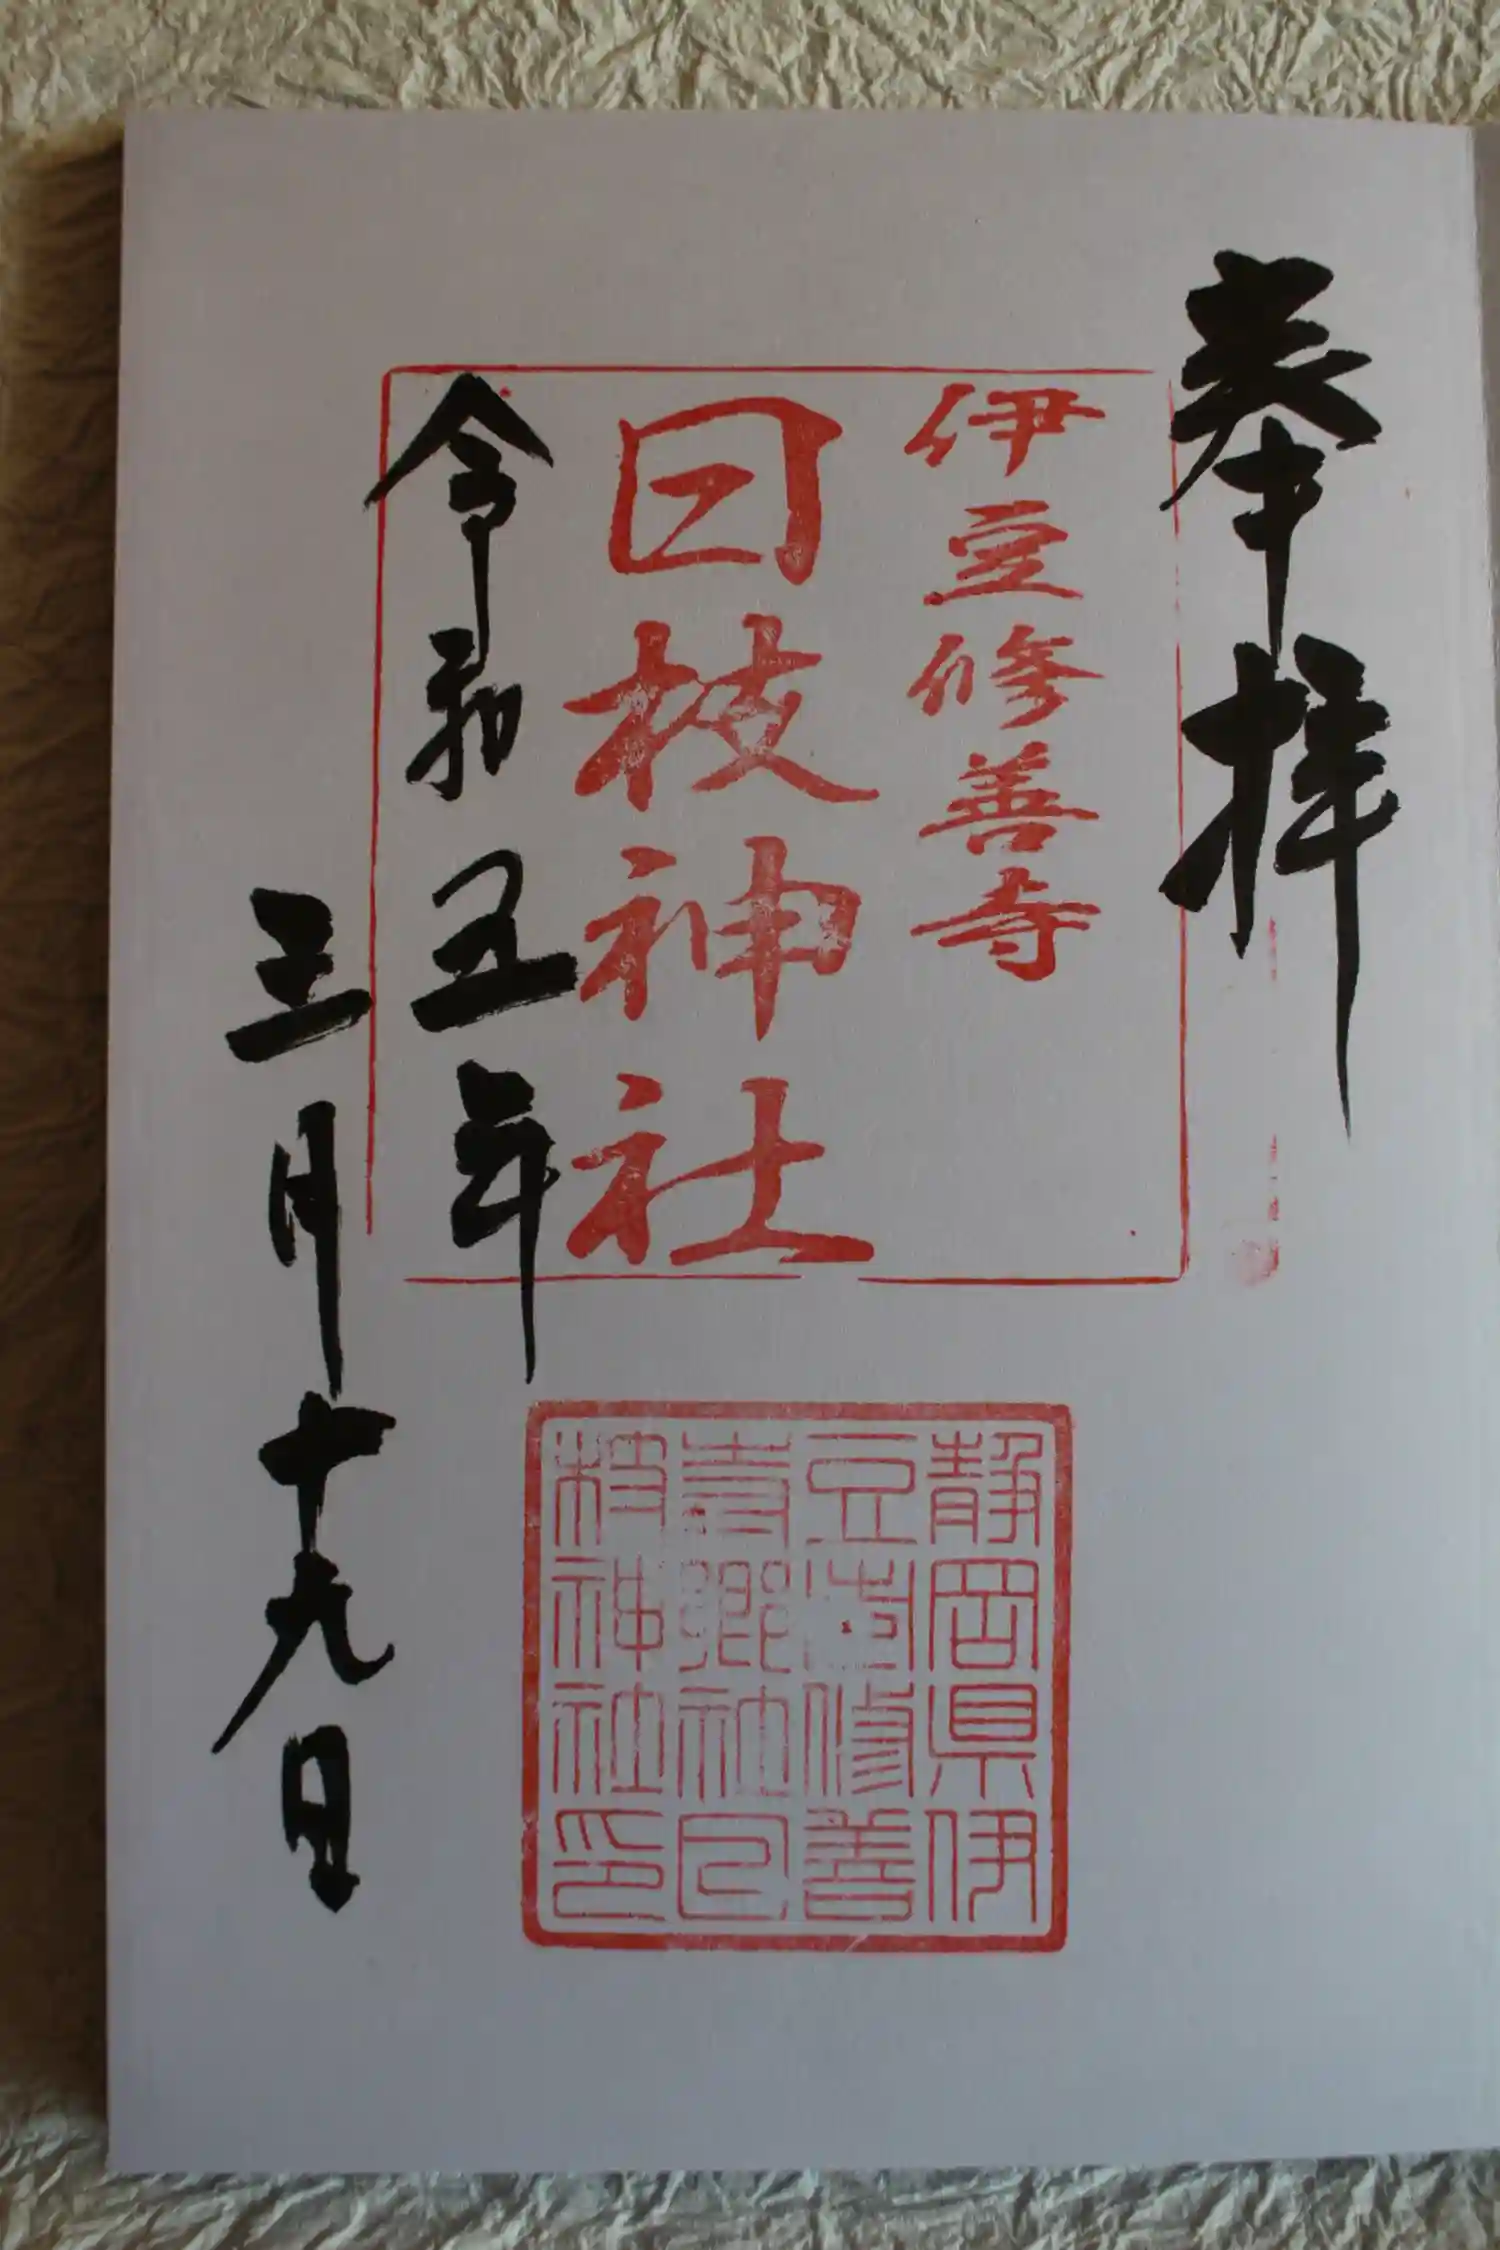 奉拝
伊豆修善寺
日枝神社
令和五年
三月十九日
静岡県伊
豆市修善
寺郷社日
枝神社印